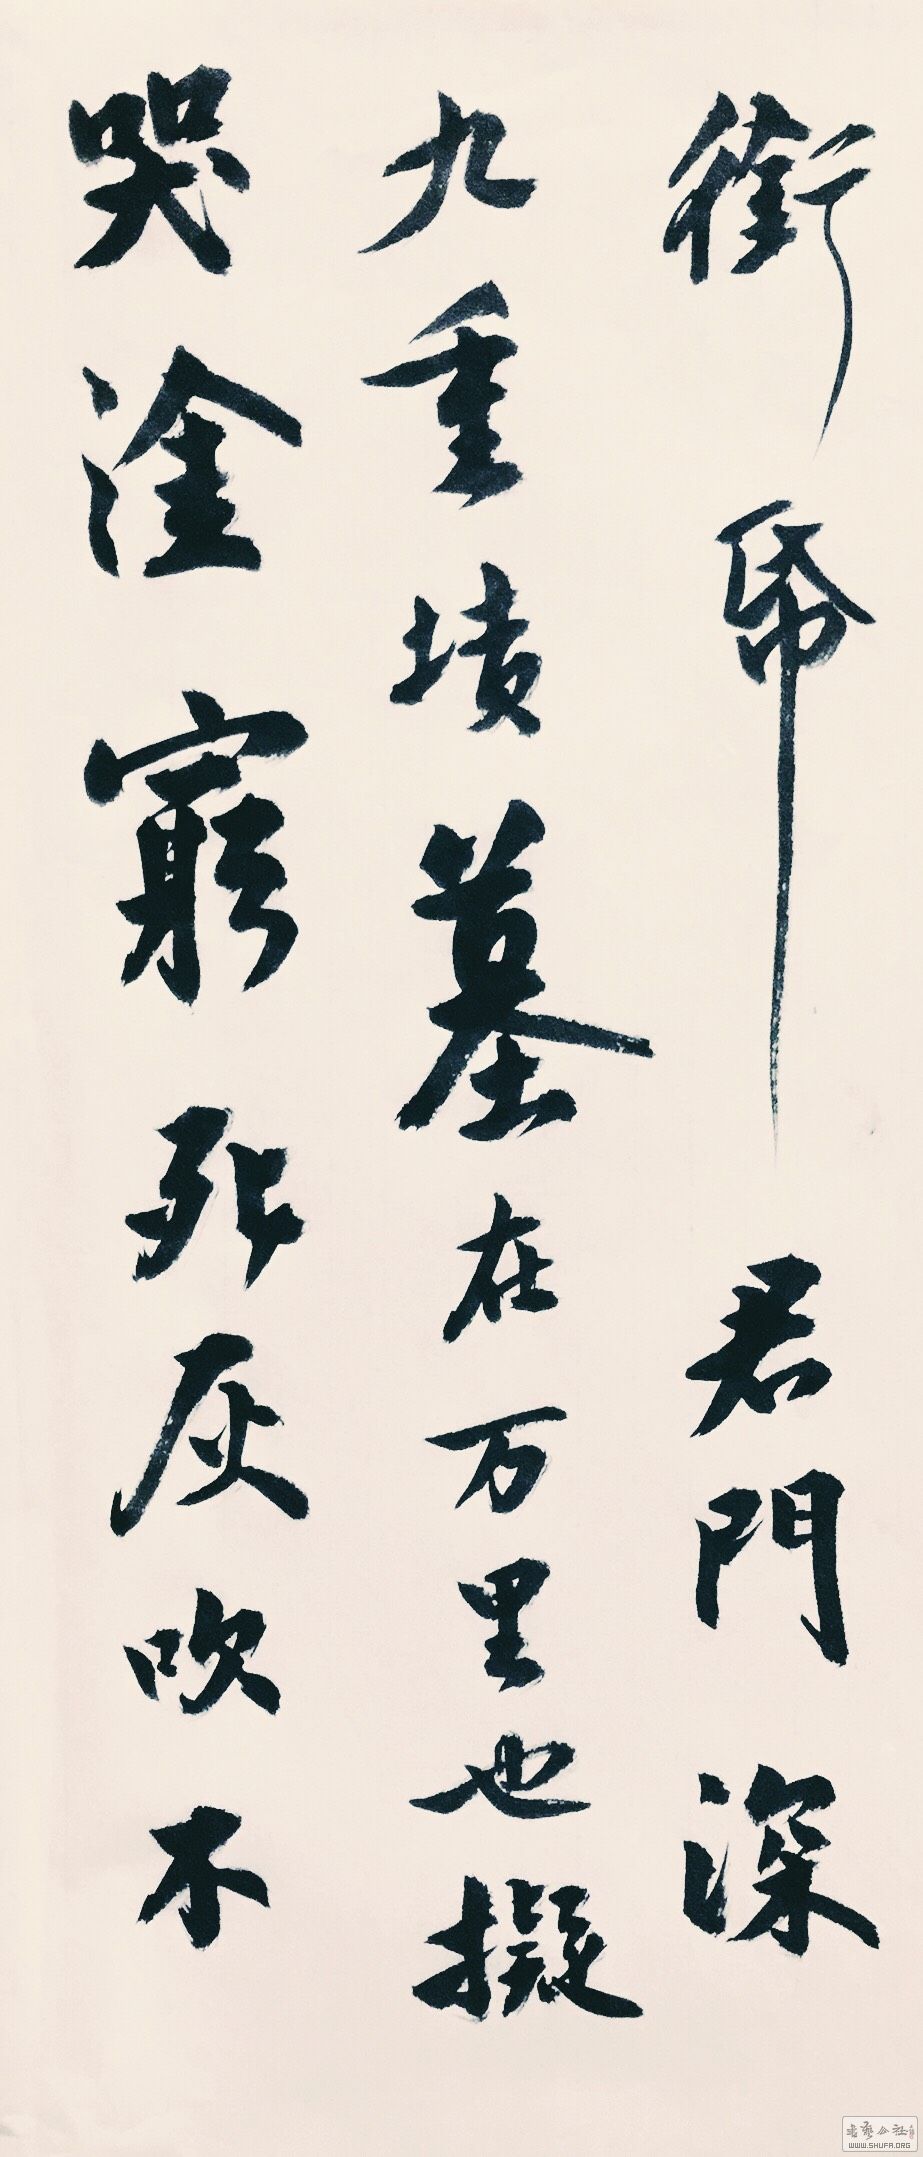 銜帋君門深
九重墳墓在万里也擬
哭塗窮死灰吹不
书艺公社
WWW.SHUFA.ORG